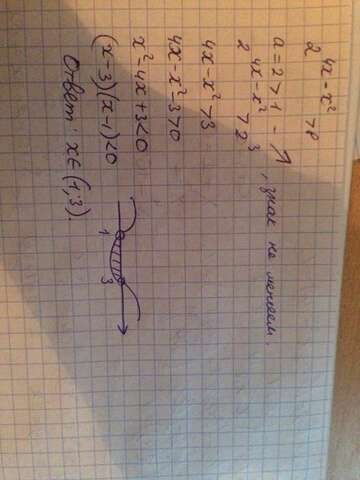 2^(4x-x²) > 8
a = 2 > 1 - ↑, знак не меняем.
2^(4x-x²) > 2³
4x-x² > 3
4x-x²-3 > 0
x²-4x+3 < 0
(x-3)(x-1) < 0
1 3
Ответ: x∈(1;3).